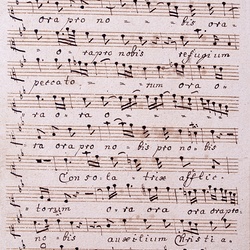 ora pro no - - bis ora
ora pro nobis refugium
peccato - - rum ora o -
ra o ra - - -
ra ora pro no - bis pro nobis
Con so la - trix afflic -
torum ora ora ora pro
no - bis auxilium Christi a